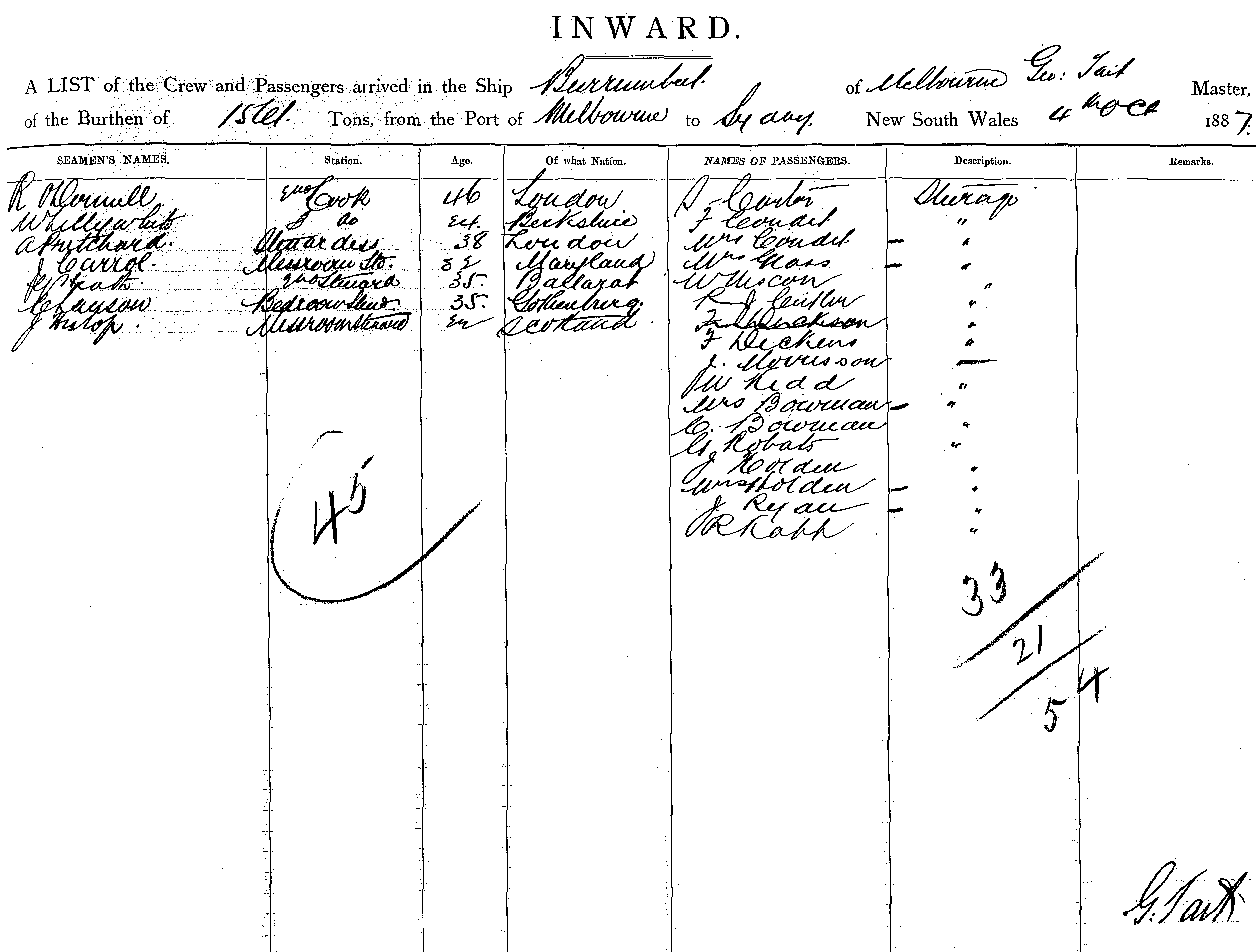 INWARD.
A LIST of the Crew and Passengers arrived in the Ship Burrumbeet. of Melbourne Geo: Tait Master,
of the Burthen of Tons, from the Port of Melbourne to Sydney New South Wales 4th Oct 1887.
SEAMEN'S NAMES. Station. Age. Of what Nation. NAMES OF PASSENGERS. Description. Remarks.
R O'Connell 2nd Cook 46 London Carter Steerage
W Lillywhite 3 do 24 Berkshire F Condit "
A Pritchard. Stewardess 38 London Mrs Condit - "
J Carrol. Messroom Std. 32 Maryland Mrs Glass - "
2nd Steward 35. Ballarat W "
Bedroom Stwd 35. Gothenberg. R J Cutler "
J Hislop. Messroom Steward Scotland "
F Dickens "
J. Morrisson
W Kidd "
Mrs Bowman - "
C. Bowman "
G. Robats "
J Holden "
Mrs Holden - "
J Ryan - "
R Kabh "
45
33
21
54
G. Tait